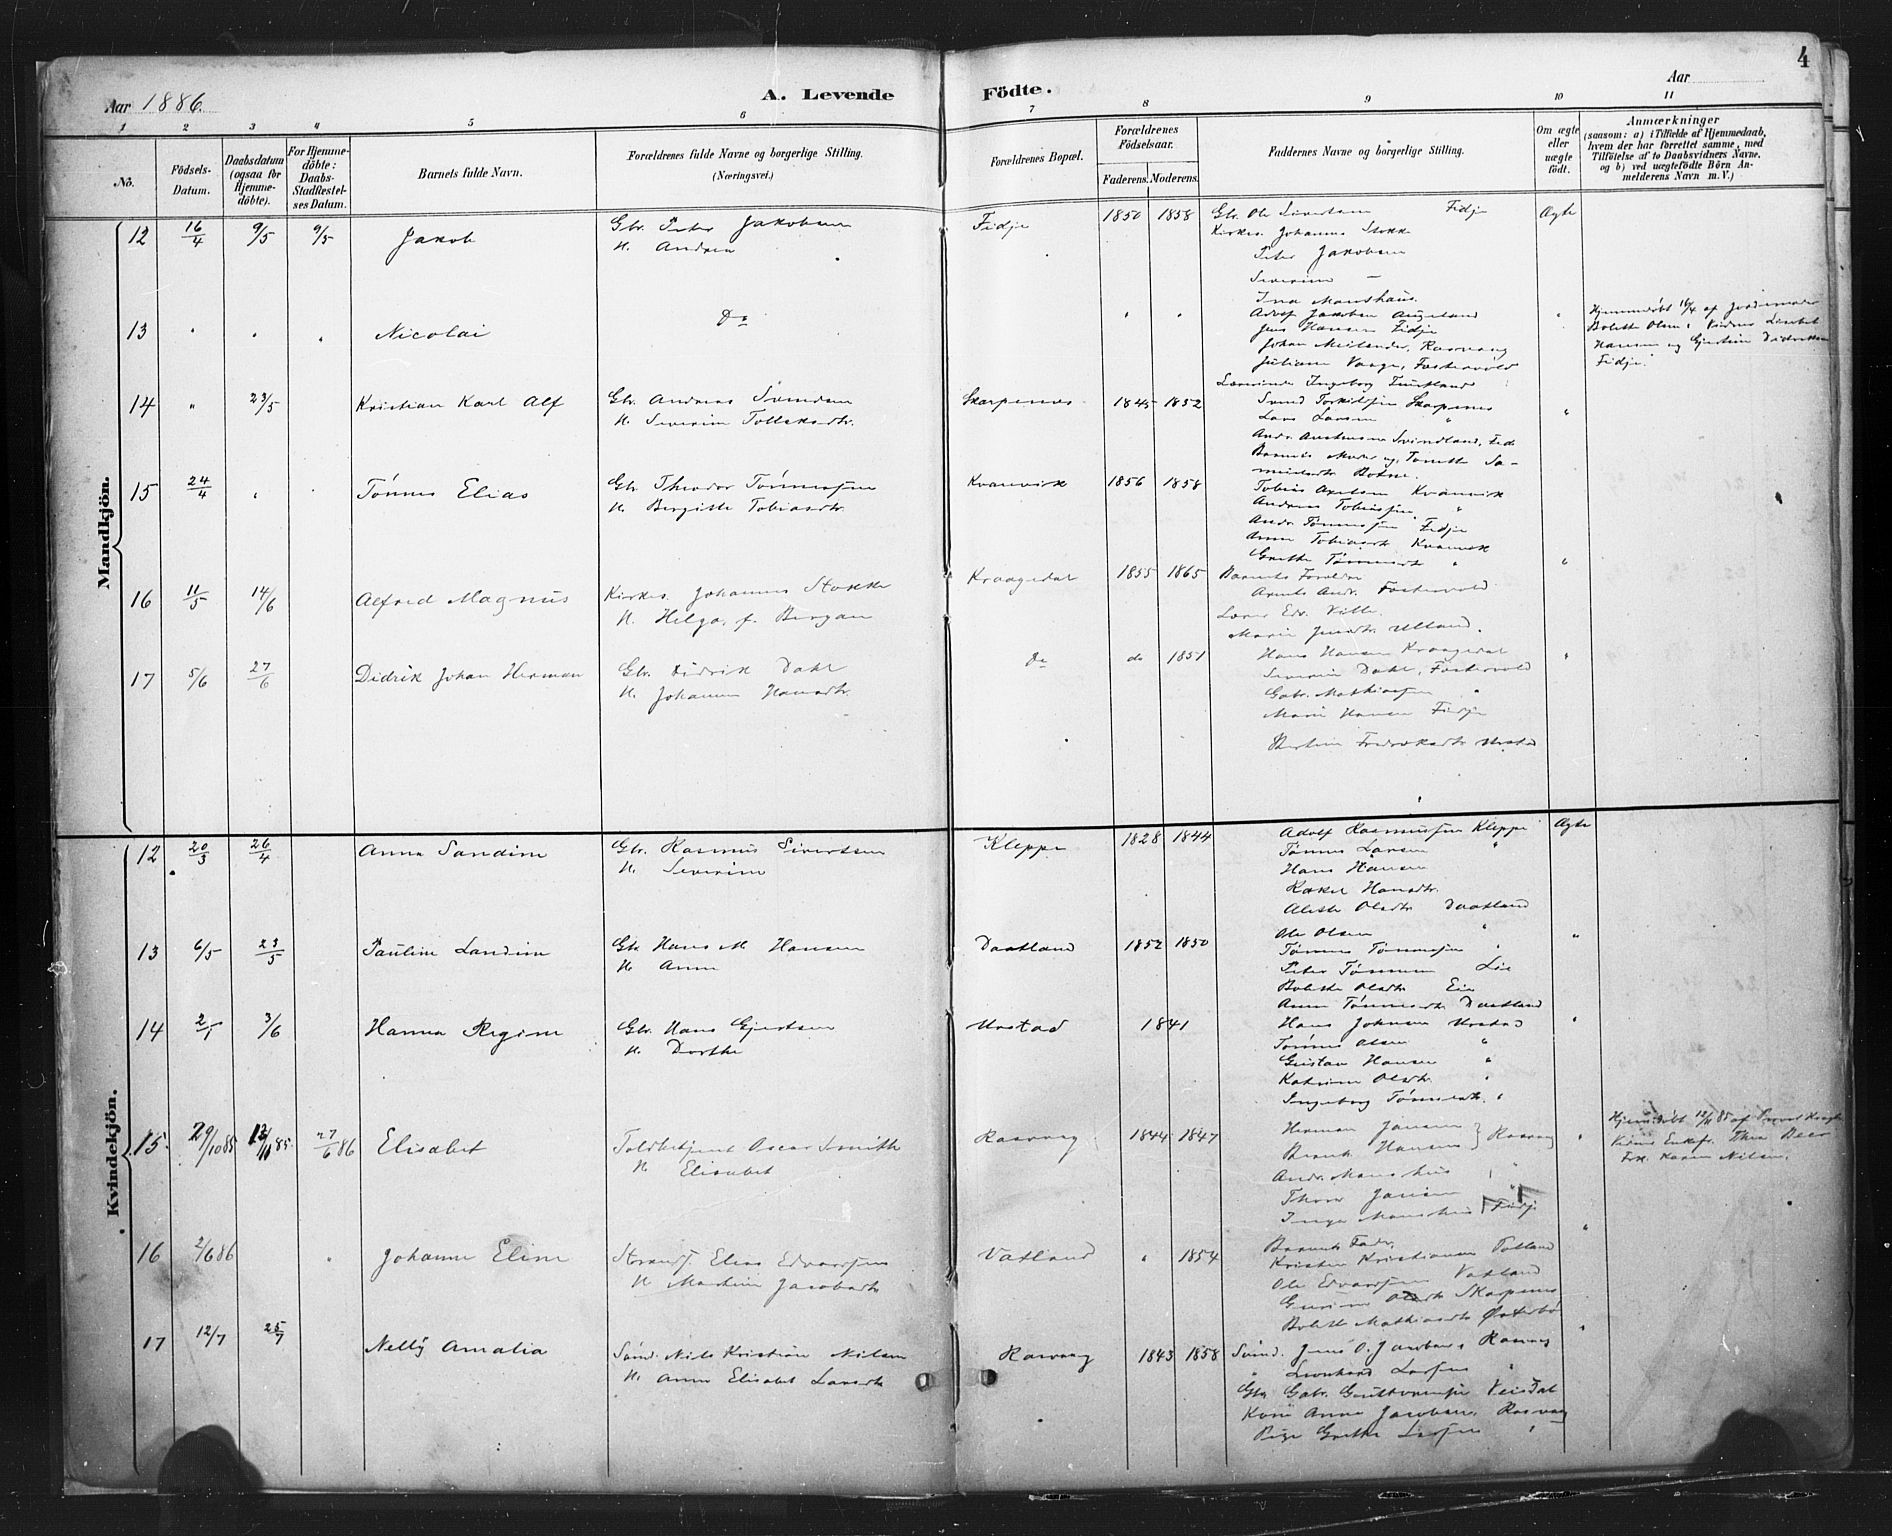 4
Aar 1886.
A. Levende Födte.
Aar
1 2 3 4 5 6 7 8 9 10 11
No.
Födsels-Datum.
Daabsdatum (ogsaa for Hjemme-döbte).
For Hjemme-döbte: Daabs-Stadfæstel-ses Datum.
Barnets fulde Navn.
Forældrenes fulde Navne og borgerlige Stilling.
(Næringsvei.)
Forældrenes Bopæl.
Forældrenes Födselsaar.
Faderens. Moderens.
Faddernes Navne og borgerlige Stilling.
Om ægte eller uægte födt.
Anmærkninger
(saasom: a) i Tilfælde af Hjemmedaab, hvem der har forrettet samme, med Tilföielse af to Daabsvidners Navne. og b) ved uægtefödte Börn Anmelderens Navn m. V.)
Mandkjön.
12 16/4 9/5 9/5 Jakob Gbr. Peter Jakobsen Fidje 1850 1858 Gbr. Ole Sivertsen Fidje Ægte
H. Andrea
Kirkes. Johannes Stokke
Peter Jakobsen
Severine —
Ina Monshaus.
13 " " " Nicolai Do " " Adolf Jakobsen Augland "
Jens Hansen Fidje
Johan Meilander, Rasvaag
Juliane Vaage, Fostervold
Hjemmedøbt 16/4 af Jordemoder
Bolette Olsen. Vidner Lisabet
Hansen og Gjertine Didriksen
Fidje.
14 " 23/5 Kristian Karl Alf Gbr. Andreas Svendsen Skarpenes 1845 1852
H. Severine Tollaksdtr.
Lærerinde Ingeborg
Svend Torkildsen Skarpenes
Lars Larsen "
Andr. Svindland, Fide
15 24/4 " " Tønnes Elias Gbr. Theodor Tønnessen Kvanvik 1856 1858
H. Bergitte Tobiasdtr.
Tobias Axelsen Kvanvik
Andreas Tobiassen "
Andr. Tønnessen Fidje
Anna Tobiasdtr. Kvanvik
Grethe Tønnesdtr "
16 11/5 14/6 Alfred Magnus Kirkes. Johannes Stokke Kraagedal 1855 1865 Barnets Forældre "
H. Helga, f. Bergan
Andr. Fostervold
Lærer Edv. Ville.
Marie Ulland.
17 5/6 27/6 Didrik Johan Herman Gbr. Didrik Dahl Do do 1851 Hans Hansen Kraagedal "
H. Johanne Hansdtr.
Severine Dahl, Fostervold
Gabr. Mathiassen "
Marie Hansen Fidje
Bertine Fredriksdtr Urstad
Kvindekjön.
12 20/3 26/4 Anna Sandine Gbr. Rasmus Sivertsen Kleppe 1828 1844 Adolf Rasmussen Kleppe Ægte
H. Severine
Tønnes Larsen "
Hans Hansen
Rakel Hansdtr.
Alette Olsdtr Daatland
13 6/5 23/5 Pauline Landine Gbr. Hans M. Hansen Daatland 1852 1850 Ole Olsen " "
H. Anne
Tønnes Tønnessen "
Peter Tønnessen Lie
Bolette Olsdtr Eie
Anne Tønnesdtr Daatland
14 2/5 3/6 Hanna Regine Gbr. Hans Gjertsen Urstad 1841 Hans Johnsen Urstad "
H. Dorthe
Tønnes Olsen "
Gustav Hansen "
Katrine Olsdtr. "
Ingeborg Tønnesdtr. "
15 29/10 85 12/11 85. 27/6 86 Elisabet Toldbetjent Oscar Smith Rasvaag 1844 1847 Herman Jansen "
H. Elisabet
Bernt Hansen } Rasvaag
Andr. Monshus
Thora Jansen "
Inga Monshus Fidje
Hjemmedøbt 12/11 85 af Provst
Vidner Enkefr. Thea Beer
Frk. Karen Nilsen.
16 2/6 86 " Johanne Eline Strands. Elias Edvardsen Vatland " 1854 Barnets Fader, "
H. Martine Jacobsdtr
Kristen Kristiansen
Ole Edvardsen Vatland
Gurine Olsdtr Skarpenes
Bolette Mathiasdtr Østebø
17 12/7 25/7 Nelly Amalia Sømd. Nils Kristian Nilsen Rasvaag 1843 1858 Sømd. Jens O. Jacobsen Rasvaag "
H. Anne Elisabet Larsdtr
" Leonhard Larsen "
Gbr Gabr. Veisdal
Kone Anne Jacobsen, Rasvaag
Pige Grethe Larsen "